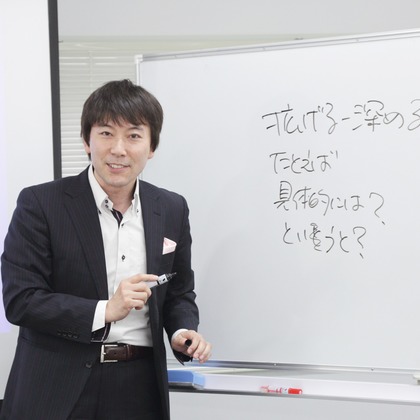 拡げる-深める
たとえば
具体的には?
というと?